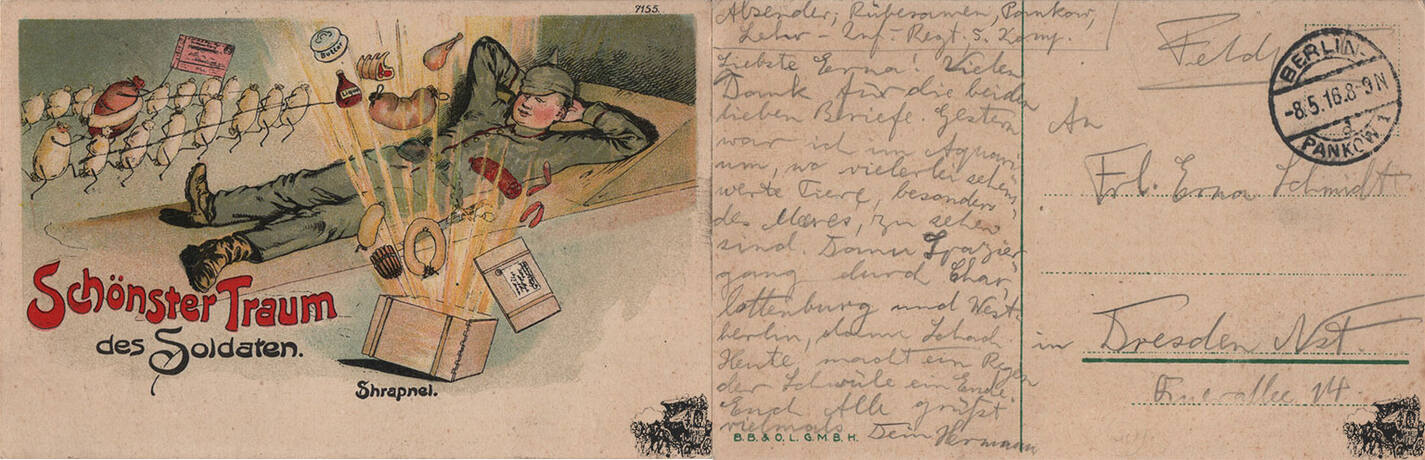 7155.
Butter
Liqueur
Schönster Traum
des Soldaten.
Shrapnel.
Absender; Rübesamen, Pankow,
Lehr-Inf-Regt. 5. Komp.
Liebste Erna! Vielen
Dank für die beiden
lieben Briefe. Gestern
war ich im Aquari-
um, wo vielerlei sehens
werte Tiere, besonders
des Meeres, zu sehen
sind. Dann Spazier
gang durch Char-
lottenburg und West-
berlin, dann Schach
Heute macht ein Regen
der Schwüle ein Ende.
Euch Alle grüßt
vielmals Dein Hermann
B.B.& O.L.G.M.B.H.
BERLIN-
-8.5.16.8-9N
a
PANKOW 1
An
Frl. Erna Schmidt
in Dresden Nst.
14